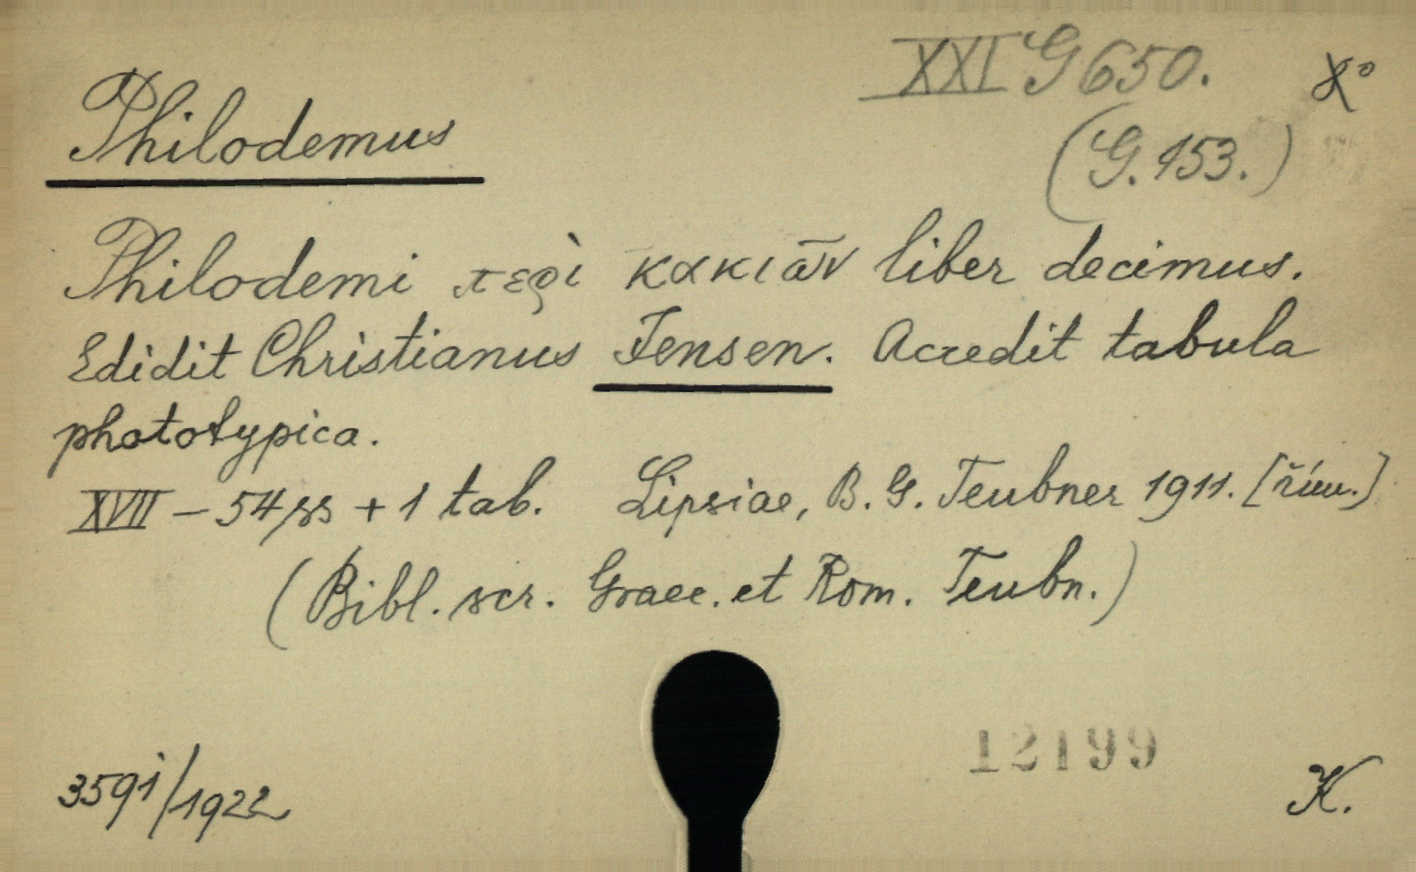 XXI G 650. 8°
Philodemus
(G. 153.)
Philodemi περὶ κακιῶν liber decimus.
Edidit Christianus Jensen. Accedit tabula
phototypica.
XVII – 54 ss + 1 tab. Lipsiae, B. G. Teubner 1911. [řím.]
(Bibl. scr. Graec. et Rom. Teubn.)
12199
3591/1922 K.